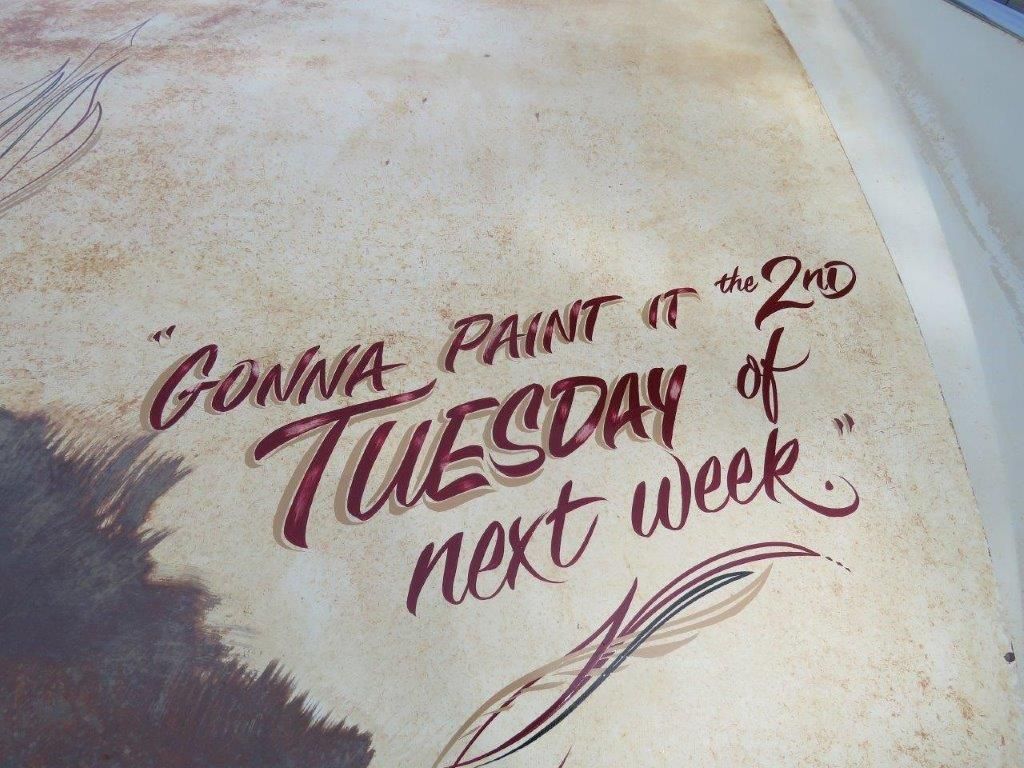 "GONNA PAINT IT the 2ND
TUESDAY of
next week."